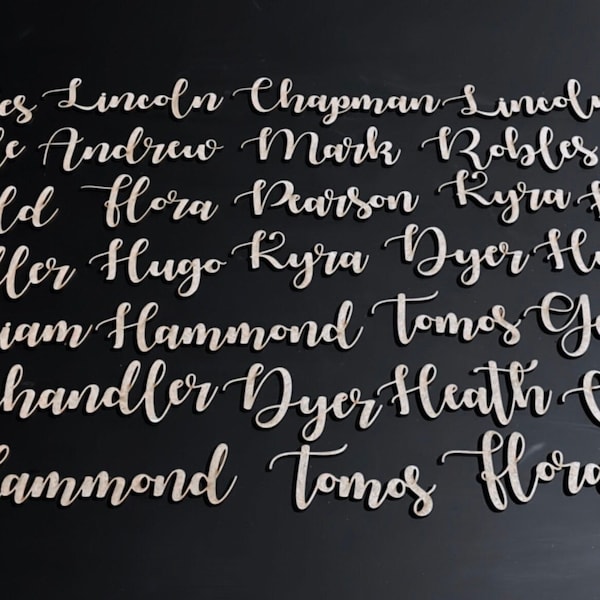 es Lincoln Chapman Lincoln
le Andrew Mark Robles
ld Flora Pearson Kyra
ller Hugo Kyra Dyer Hu
iam Hammond Tomos Ge
handler Dyer Heath
ammond Tomos Flora